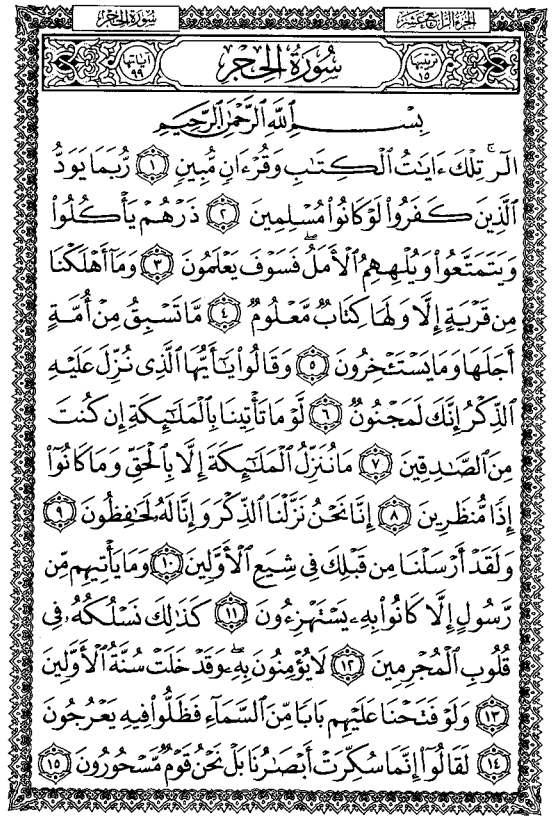 الجزء الرابع عشر
سورة الحجر
ترتيبها ١٥
سُورَةُ الحِجْرِ
آياتها ٩٩
بِسْمِ اللَّهِ الرَّحْمَٰنِ الرَّحِيمِ
الٓرۚ تِلْكَ ءَايَٰتُ ٱلْكِتَٰبِ وَقُرْءَانٍ مُّبِينٍ ١ رُّبَمَا يَوَدُّ
ٱلَّذِينَ كَفَرُواْ لَوْ كَانُواْ مُسْلِمِينَ ٢ ذَرْهُمْ يَأْكُلُواْ
وَيَتَمَتَّعُواْ وَيُلْهِهِمُ ٱلْأَمَلُۖ فَسَوْفَ يَعْلَمُونَ ٣ وَمَآ أَهْلَكْنَا
مِن قَرْيَةٍ إِلَّا وَلَهَا كِتَابٌ مَّعْلُومٌ ٤ مَّا تَسْبِقُ مِنْ أُمَّةٍ
أَجَلَهَا وَمَا يَسْتَـْٔخِرُونَ ٥ وَقَالُواْ يَٰٓأَيُّهَا ٱلَّذِى نُزِّلَ عَلَيْهِ
ٱلذِّكْرُ إِنَّكَ لَمَجْنُونٌ ٦ لَّوْ مَا تَأْتِينَا بِٱلْمَلَٰٓئِكَةِ إِن كُنتَ
مِنَ ٱلصَّٰدِقِينَ ٧ مَا نُنَزِّلُ ٱلْمَلَٰٓئِكَةَ إِلَّا بِٱلْحَقِّ وَمَا كَانُوٓاْ
إِذًا مُّنظَرِينَ ٨ إِنَّا نَحْنُ نَزَّلْنَا ٱلذِّكْرَ وَإِنَّا لَهُۥ لَحَٰفِظُونَ ٩
وَلَقَدْ أَرْسَلْنَا مِن قَبْلِكَ فِى شِيَعِ ٱلْأَوَّلِينَ ١٠ وَمَا يَأْتِيهِم مِّن
رَّسُولٍ إِلَّا كَانُواْ بِهِۦ يَسْتَهْزِءُونَ ١١ كَذَٰلِكَ نَسْلُكُهُۥ فِى
قُلُوبِ ٱلْمُجْرِمِينَ ١٢ لَا يُؤْمِنُونَ بِهِۦۖ وَقَدْ خَلَتْ سُنَّةُ ٱلْأَوَّلِينَ
١٣ وَلَوْ فَتَحْنَا عَلَيْهِم بَابًا مِّنَ ٱلسَّمَآءِ فَظَلُّواْ فِيهِ يَعْرُجُونَ
١٤ لَقَالُوٓاْ إِنَّمَا سُكِّرَتْ أَبْصَٰرُنَا بَلْ نَحْنُ قَوْمٌ مَّسْحُورُونَ ١٥